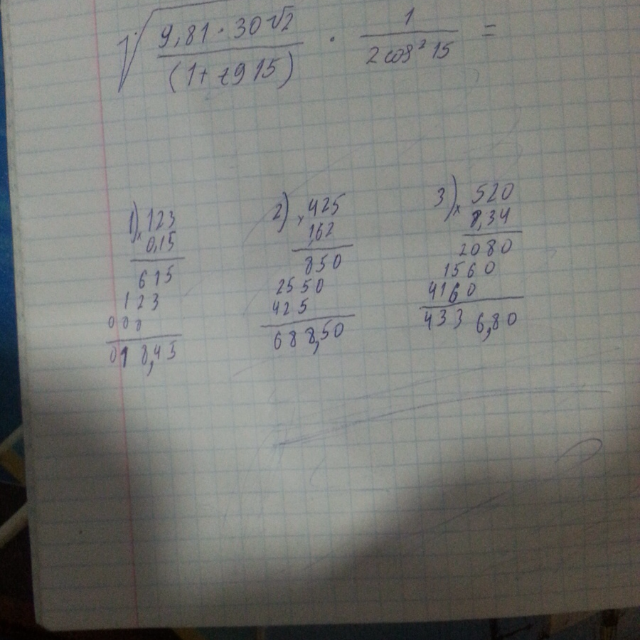 √ 9,81 · 30√2 / (1 + tg 15) · 1 / 2cos² 15 =
1) 123
× 0,15
615
123
000
018,45
2) × 425
1,62
850
2550
425
688,50
3) × 520
8,34
2080
1560
4160
4336,80